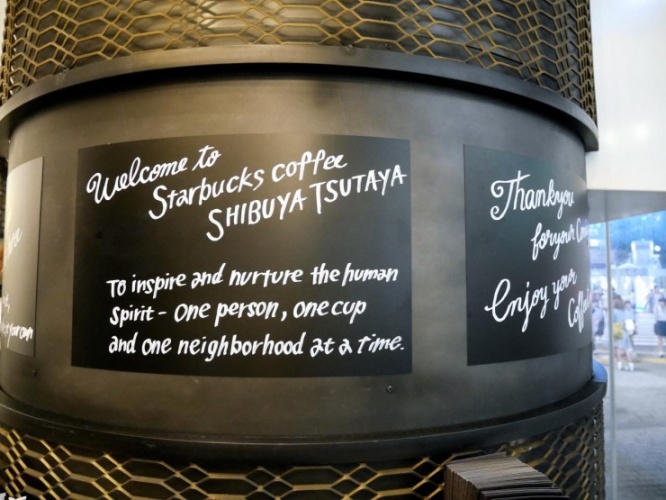 Welcome to
Starbucks coffee
SHIBUYA TSUTAYA
To inspire and nurture the human
spirit - one person, one cup
and one neighborhood at a time.
Thankyou
foryour
Enjoy your